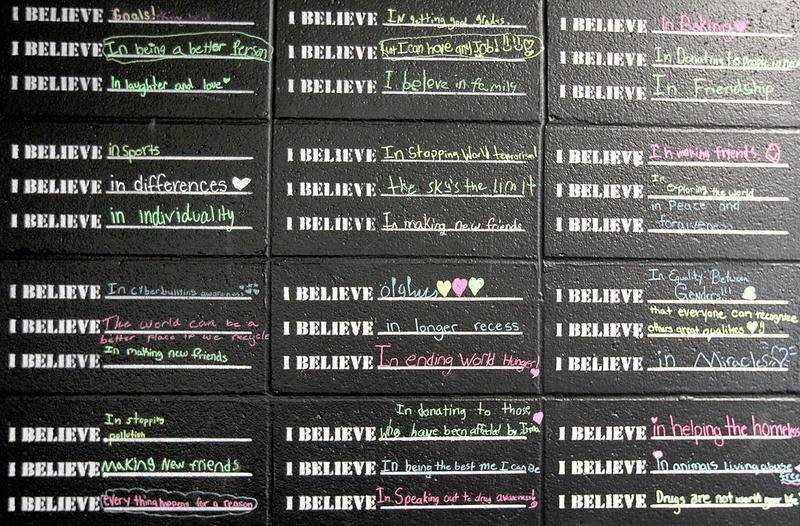 I BELIEVE Goals!
I BELIEVE In being a better Person
I BELIEVE In laughter and love
I BELIEVE In getting good grades.
I BELIEVE that I can have any Job!
I BELIEVE I beleve in family
I BELIEVE In Baking
I BELIEVE In Donating to people in need
I BELIEVE In Friendship
I BELIEVE in sports
I BELIEVE in differences
I BELIEVE in individuality
I BELIEVE In Stopping World terrorism!
I BELIEVE the sky's the limit
I BELIEVE In making new friends
I BELIEVE In making friends.
I BELIEVE In exploring the world
I BELIEVE in Peace and
forgiveness
I BELIEVE In cyberbulling awareness
I BELIEVE The world can be a
better place if we recycle
I BELIEVE In making new friends
I BELIEVE
I BELIEVE in longer recess
I BELIEVE In ending World Hunger!
In Equality Between
I BELIEVE Genders!!!
that everyone can recognize
I BELIEVE others great qualities
I BELIEVE in Miracles
In stopping
I BELIEVE pollution
I BELIEVE Making New friends
I BELIEVE everything happens for a reason
In donating to those
I BELIEVE who have been affected by Irma
I BELIEVE In being the best me I can Be
I BELIEVE In Speaking out to drug awareness!
I BELIEVE in helping the homeless
I BELIEVE In animals Living abuse
free
I BELIEVE Drugs are not worth your life